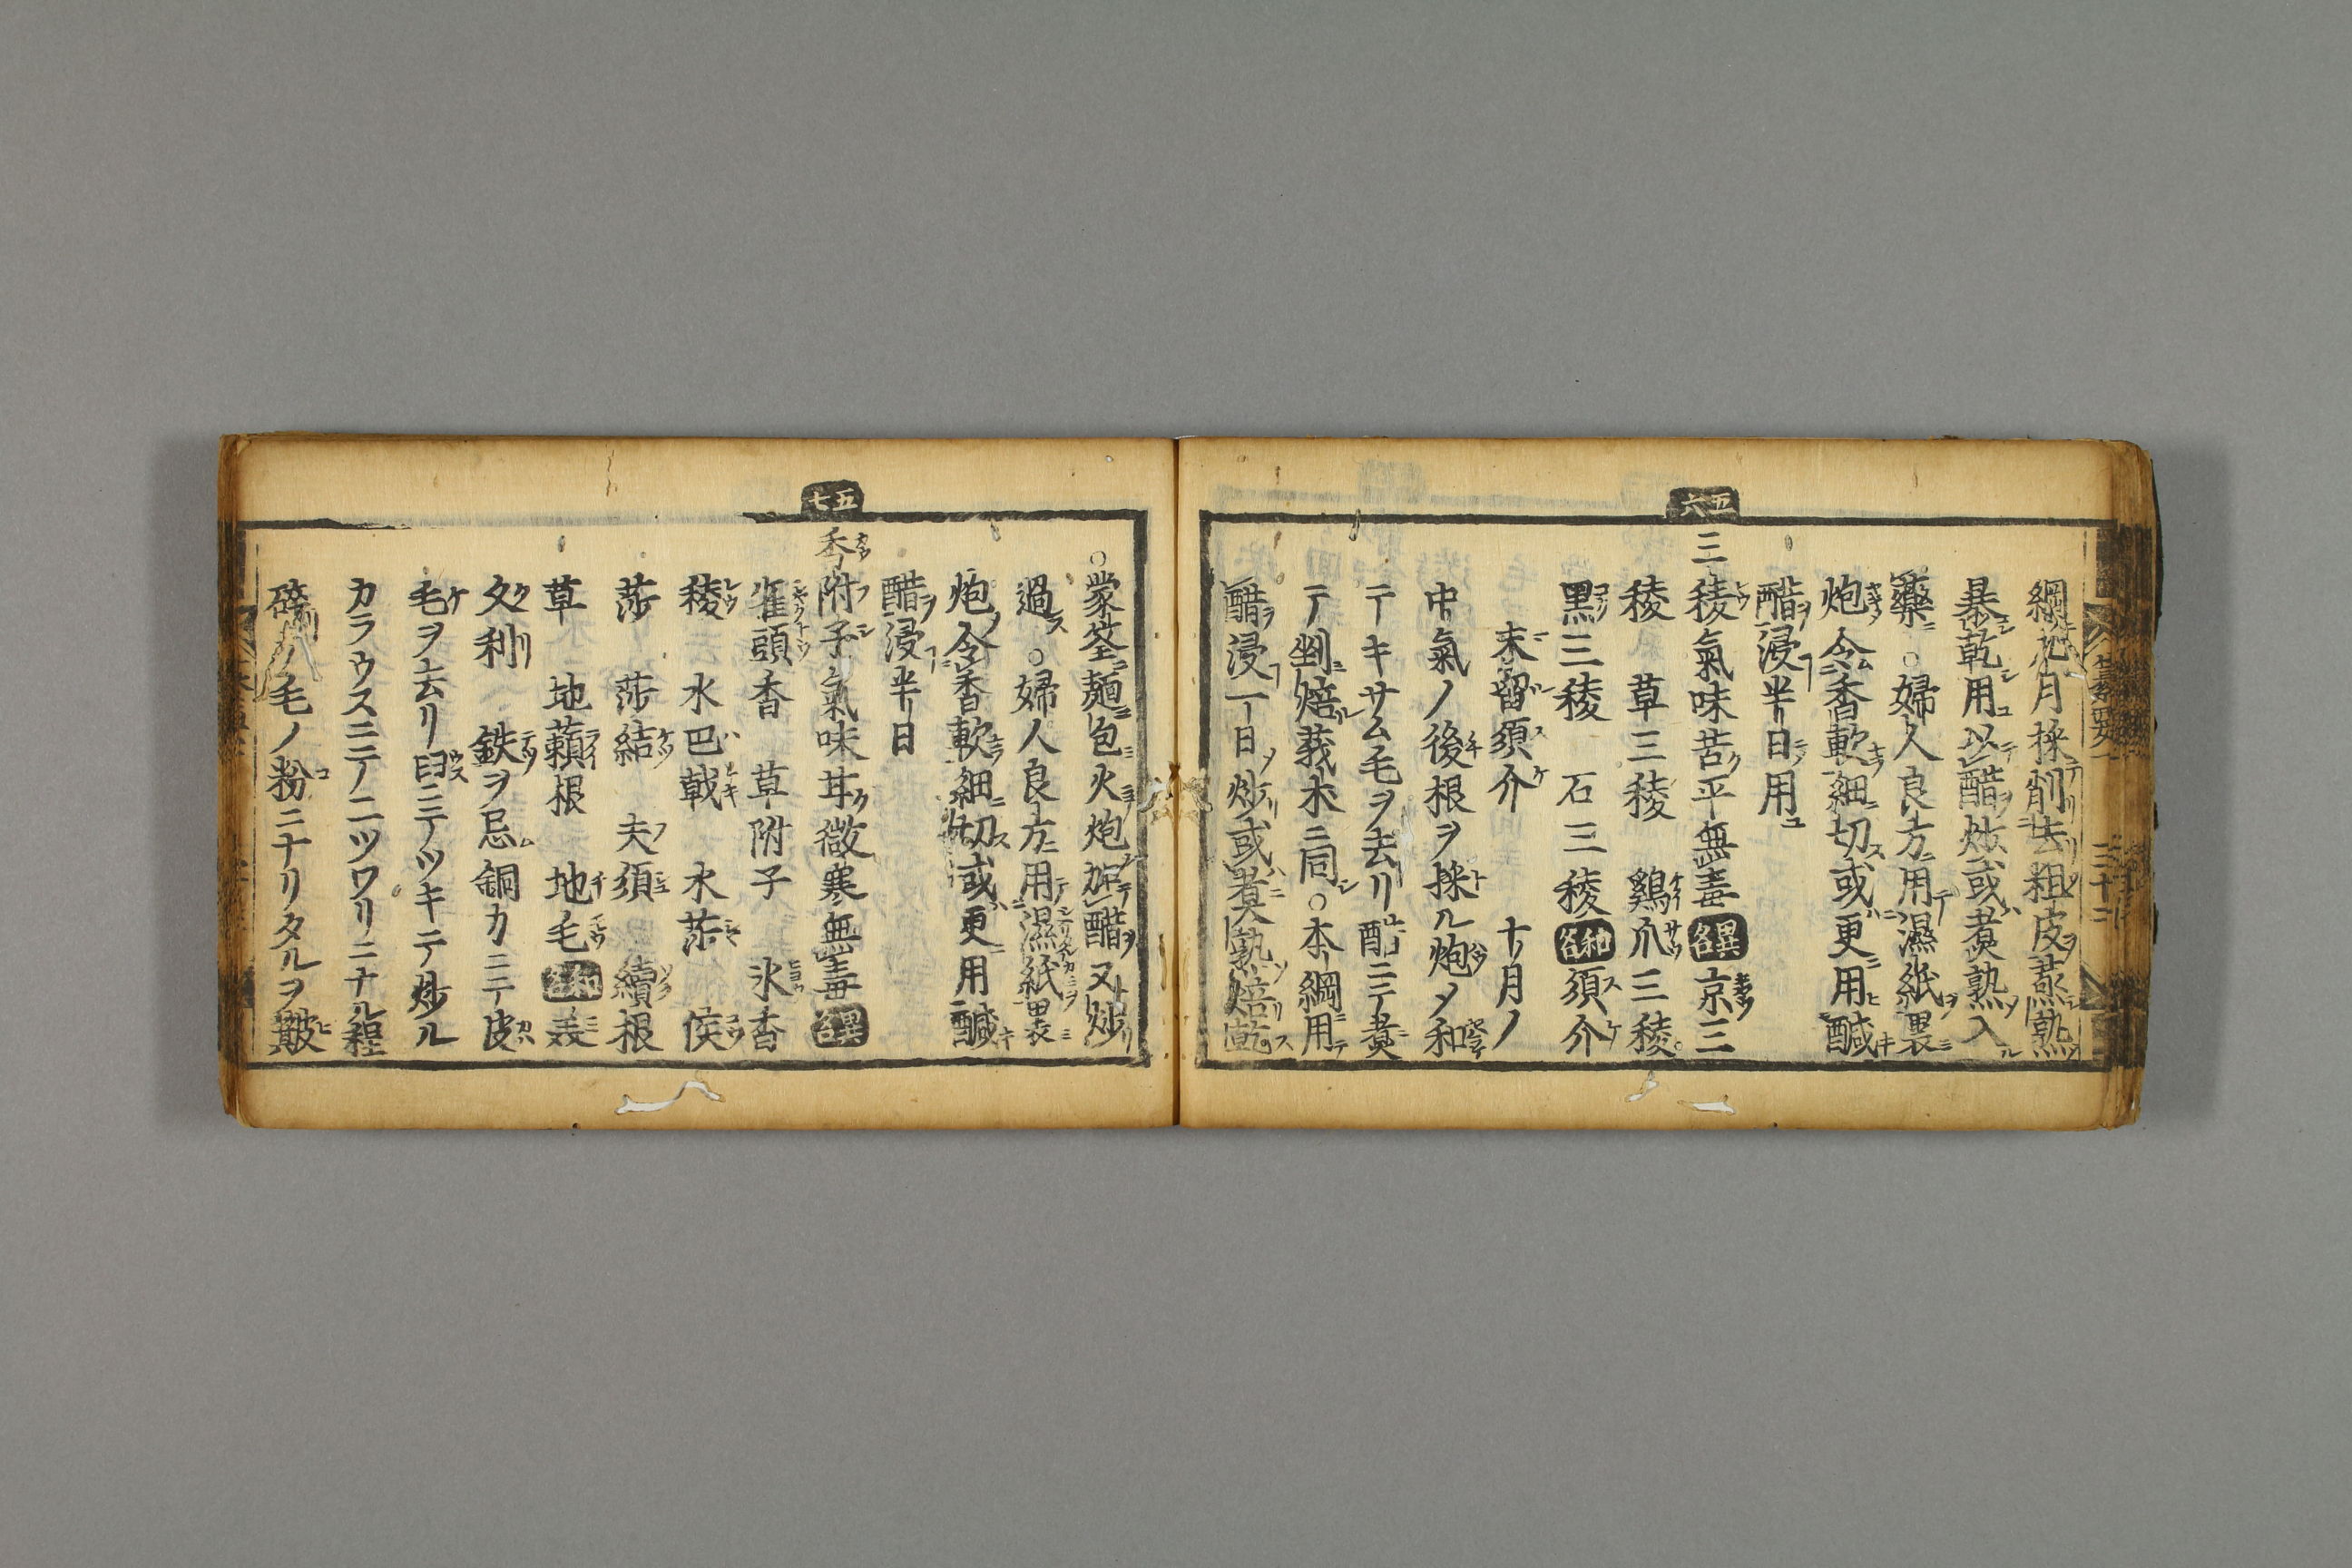 綱九月採削去粗皮蒸熟
暴乾用以醋炒或煮熟入
藥○婦人良方用濕紙裹
炮令香軟細切或更用醎
醋浸半日用
五六
三稜氣味苦平無毒 異名 京三
稜 草三稜 鷄爪三稜
黒三稜 石三稜 和名 須介
末留須介 十月ノ
中氣ノ後根ヲ採ル炮メ和
テキサム毛ヲ去リ酢ニテ煮
テ剉焙莪朮ニ同○本綱用
醋浸一日炒或煮熟焙乾
○蒙筌麺包火炮加醋又炒
過○婦人良方用濕紙裹
炮令香軟細切或更用醎
醋浸半日
五七
香附子氣味甘微寒無毒 異名
雀頭香 草附子 氷香
稜 水巴戟 水莎 侯
莎 莎結 夫須 續根
草 地藾根 地毛 和名 美
久利 鉄ヲ忌銅カニテ皮
毛ヲ去リ臼ニテツキテ炒ル
カラウスニテ二ツワリニナル程
ノ毛ノ粉ニナリタルヲ簸